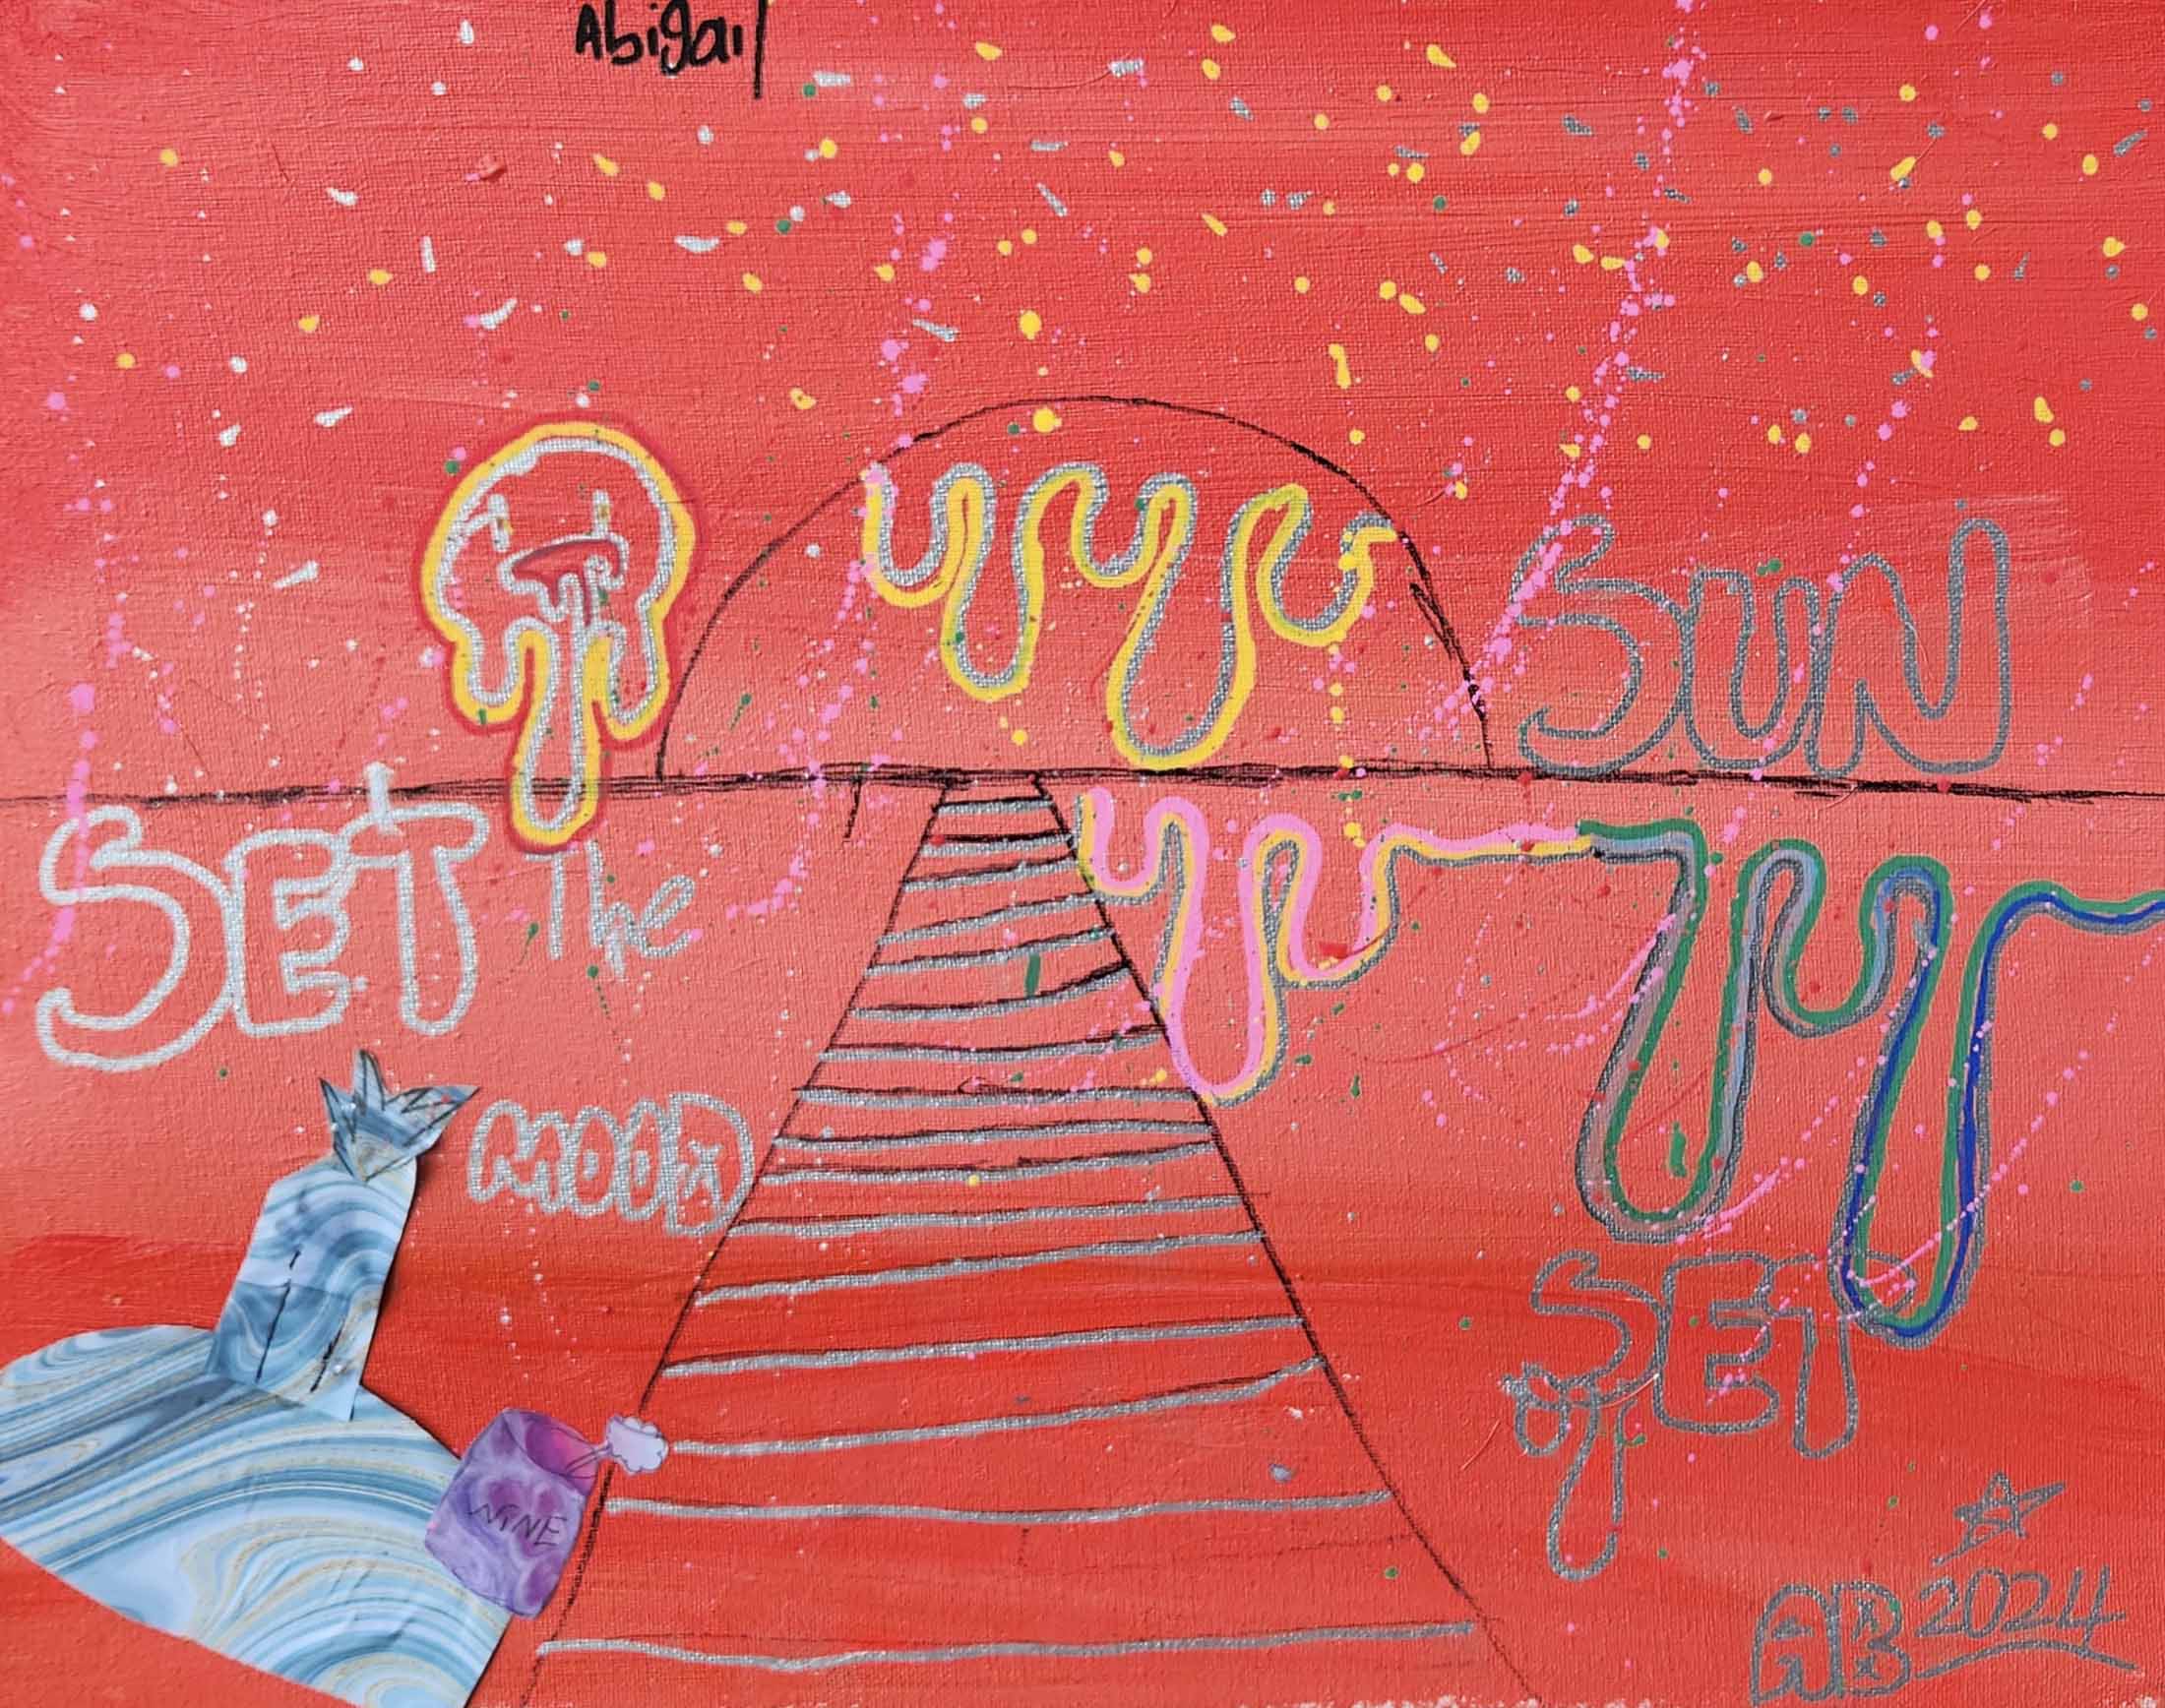 Abigail
SUN
SET The
MOOD
SET
WINE
AB 2024